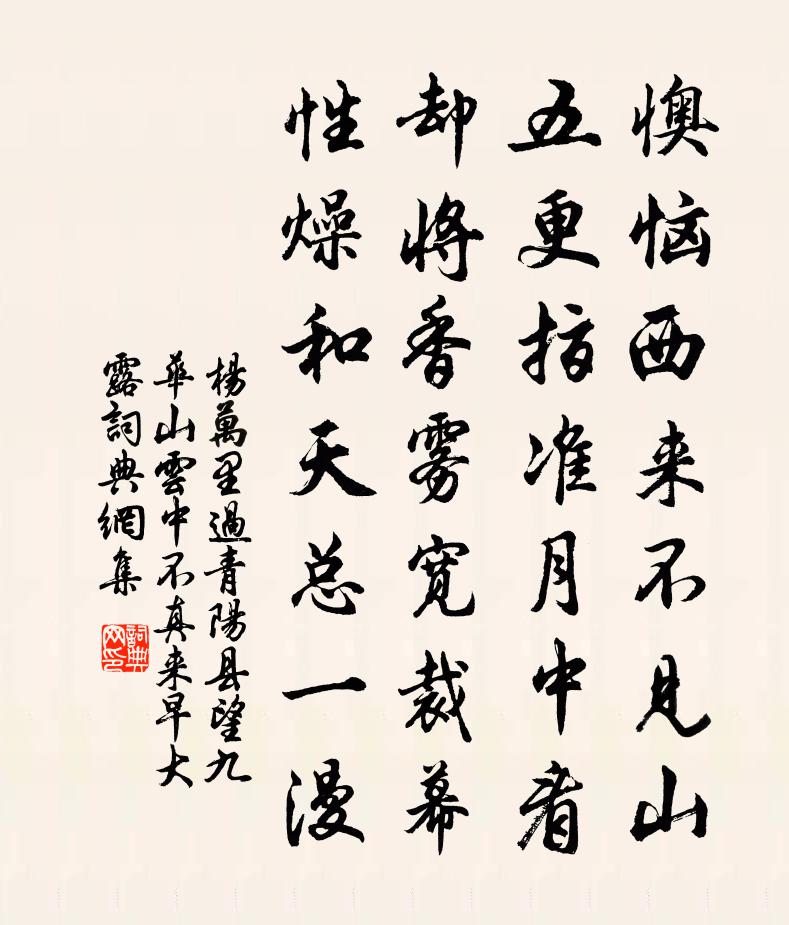 懊恼西来不见山
五更指准月中看
却将香雾宽裁幕
性燥和天总一漫
杨萬里過青陽县望九
華山雲中不真来早大
露詞典網集
詞典网印